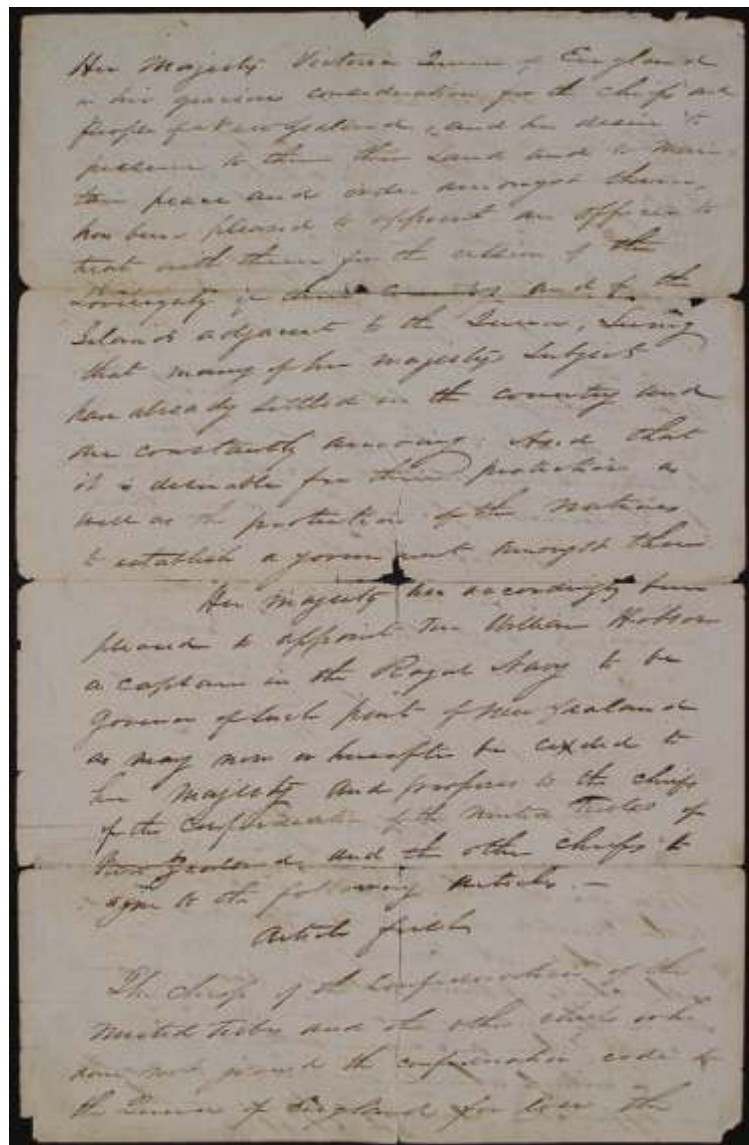 Her Majesty Victoria Queen of England
in her gracious consideration for the chiefs and
people of New Zealand, and her desire to
preserve to them their Land and to main-
tain peace and order amongst them,
has been pleased to appoint an officer to
treat with them for the cession of the
Sovreignty of their country and of the
Islands adjacent to the Queen. Seeing
that many of her Majesty's Subjects
have already settled in the country and
are constantly arriving; And that
it is desirable for their protection as
well as the protection of the natives
to establish a government amongst them
Her Majesty has accordingly been
pleased to appoint me William Hobson
a captain in the Royal Navy to be
Governor of such parts of New Zealand
as may now or hereafter be ceded to
her Majesty and proposes to the chiefs
of the Confederation of the United Tribes of
New Zealand and the other chiefs to
agree to the following articles.—
Article first
The chiefs of the Confederation of the
United Tribes and the other chiefs who
have not joined the confederation cede to
the Queen of England for ever the